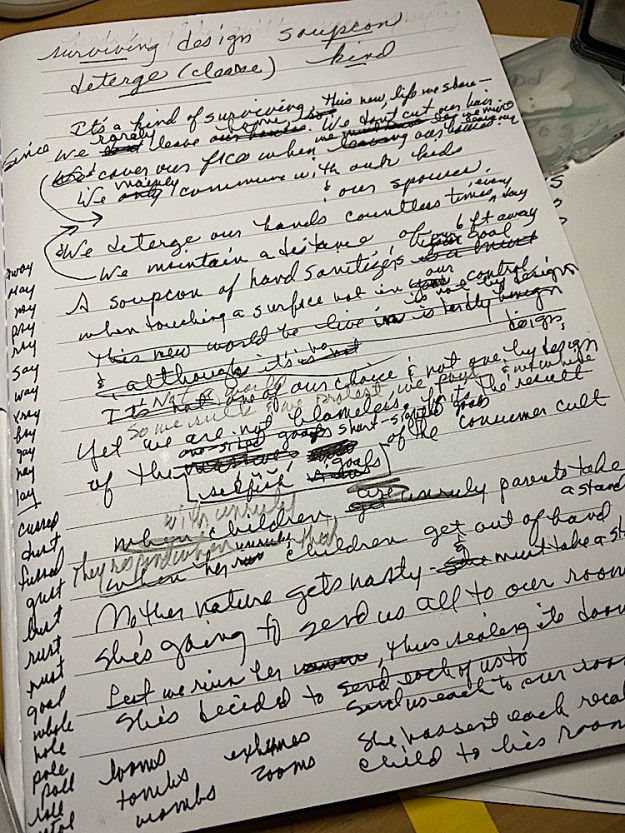 surviving design soupcon
deterge (cleanse) kind
It's a kind of surviving This new life we share –
Since we rarely leave We don't cut our hair
We cover our face when leaving our house
We mainly commune with our kids
& our spouse.
We deterge our hands countless times every day
We maintain a distance of 6 ft away
A soupcon of hand sanitizer's our goal
when touching a surface not in our control
This new world we live in is not by design
is hardly benign
& although it's
It's not of our choice & not by design
Some rules we protest, we pout & we whine
Yet we are not blameless. It's the result
of the one-sided goals short-sighted goals of the consumer cult
selfish goals
with unruly
when children are unruly parents take
a stand
They respond when
when her children get out of hand
Mother nature gets nasty – she must take a st
She's going to send us all to our room
Lest we ruin her, thus sealing its doom
She's decided to send each of us to
send us each to our room
She has sent each
child to his room
way
may
my
pay
ray
say
way
xray
hay
gay
nay
lay
cussed
dust
fussed
gust
lust
rust
rust
goal
whole
hole
pole
poll
roll
looms exhumes
tombs zooms
wombs